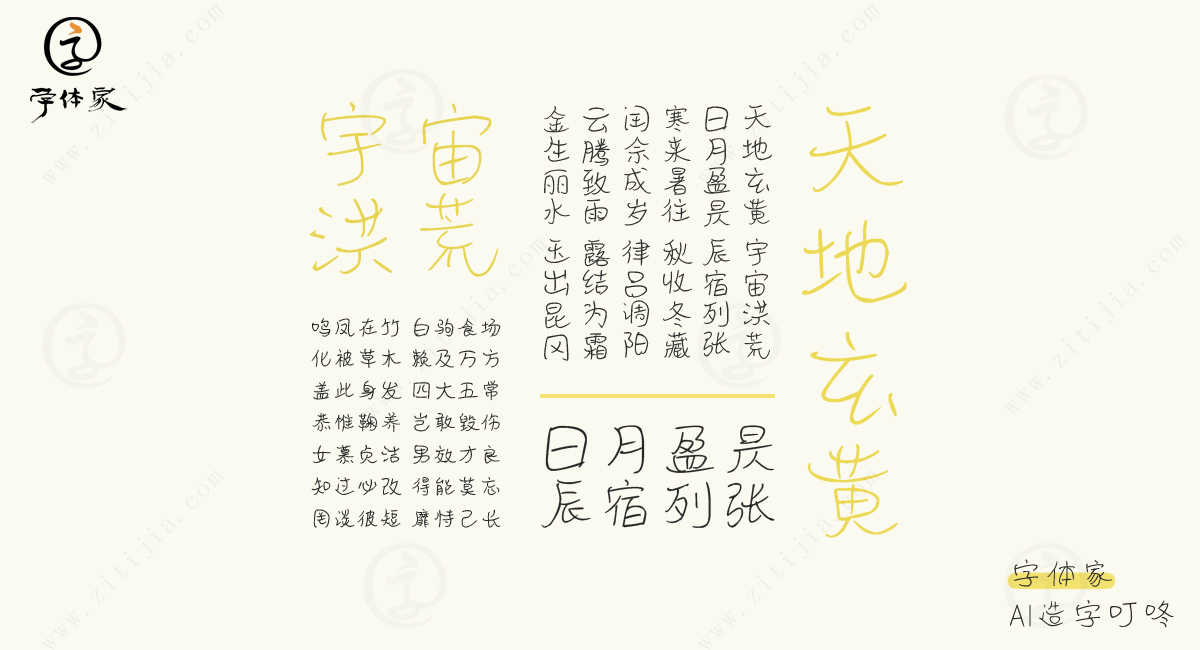 字体家
宇宙
洪荒
天地玄黄 宇宙洪荒
日月盈昃 辰宿列张
寒来暑往 秋收冬藏
闰余成岁 律吕调阳
云腾致雨 露结为霜
金生丽水 玉出昆冈
天地玄黄
鸣凤在竹 白驹食场
化被草木 赖及万方
盖此身发 四大五常
恭惟鞠养 岂敢毁伤
女慕贞洁 男效才良
知过必改 得能莫忘
罔谈彼短 靡恃己长
日月盈昃
辰宿列张
字体家
AI造字叮咚
www.zitijia.com
www.zitijia.com
www.zitijia.com
www.zitijia.com
www.zitijia.com
www.zitijia.com